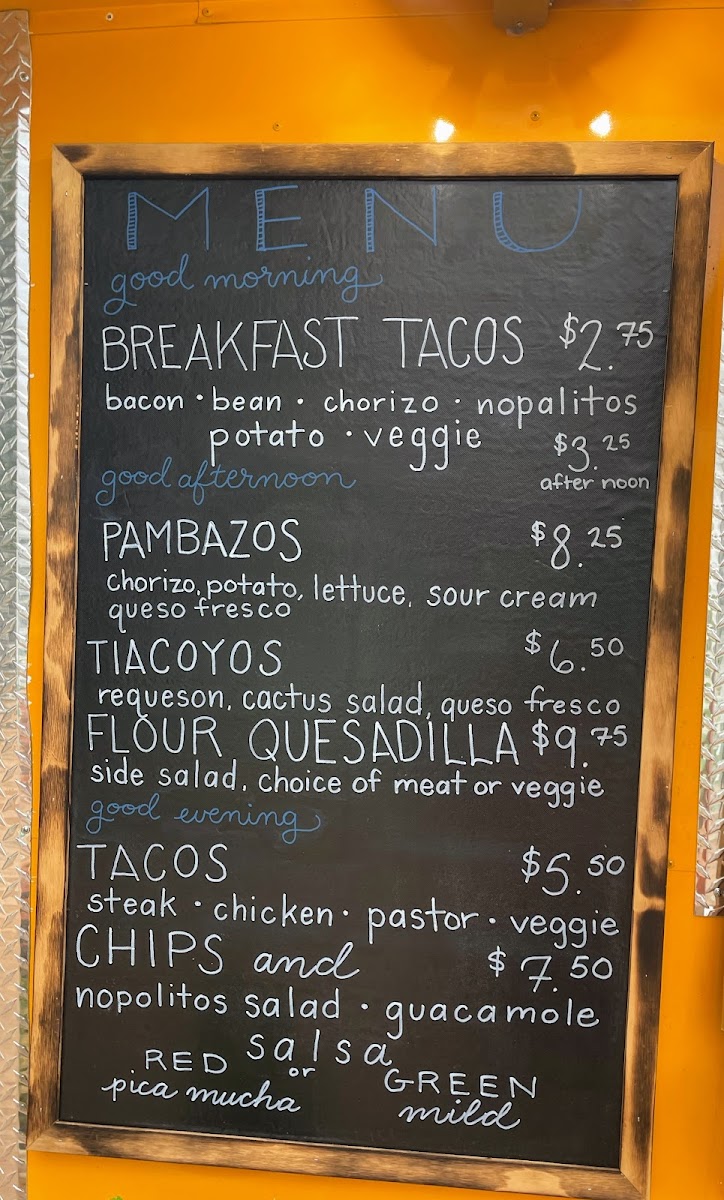 MENU
good morning
BREAKFAST TACOS $2.75
bacon · bean · chorizo · nopalitos
potato · veggie $3.25
after noon
good afternoon
PAMBAZOS $8.25
chorizo, potato, lettuce, sour cream
queso fresco
TIACOYOS $6.50
requeson, cactus salad, queso fresco
FLOUR QUESADILLA $9.75
side salad, choice of meat or veggie
good evening
TACOS $5.50
steak · chicken · pastor · veggie
CHIPS and $7.50
nopolitos salad · guacamole
salsa
RED or GREEN
pica mucha mild